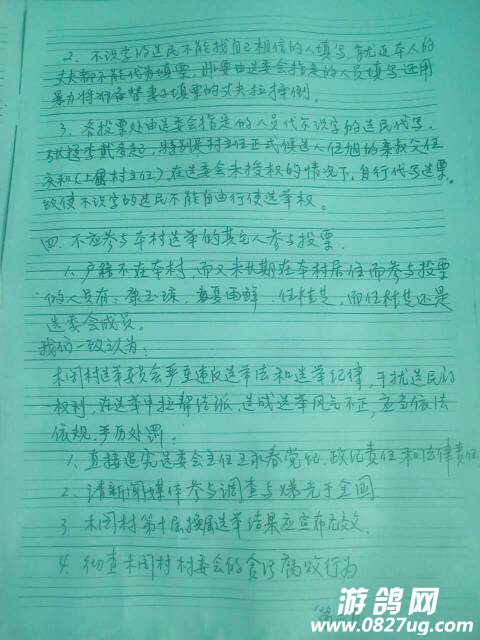 2. 不识字的选民不能找自己相信的人填写，就连本人的
丈夫都不能代为填票，非要由选委会指定的人员填写还用
暴力将准备替妻子填票的丈夫拉扯摔倒。
3. 各投票处由选委会指定的人员代不识字的选民代写
张冠李戴，特别是村主任正式候选人任旭的亲叔父任
庆和（上届村主任）在选委会未授权的情况下，自行代写选票，
致使不识字的选民不能自由行使选举权。
四. 不应参与本村选举的其它人参与投票.
1. 户籍不在本村，而又未长期在本村居住而参与投票
的人员有：任桂芝，而任桂芝还是
选委会成员。
我们一致认为：
木闭村选举委员会严重违反选举法和选举纪律，干扰选民的
权利，在选举中拉帮结派，造成选举风气不正，应当依法
依规.严厉处罚：
1. 直接追究选委会主任王永春党纪、政纪责任和法律责任
2. 请新闻媒体参与调查与曝光于全国
3 木闭村第十届换届选举结果应宣布无效.
4. 彻查木闭村村委会的贪污腐败行为
游鸽网
www.0827ug.com